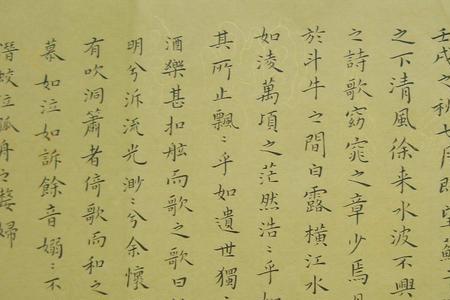 壬戌之秋七月既望蘇
之下清風徐来水波不興
之詩歌窈窕之章少焉月
於斗牛之間白露橫江水
如淩萬頃之茫然浩〻乎如
其所止飄〻乎如遺世獨
酒樂甚扣舷而歌之歌曰
明兮泝流光渺〻兮余懷
有吹洞簫者倚歌而和之
慕如泣如訴餘音嫋〻不
潛蛟泣孤舟之嫠婦